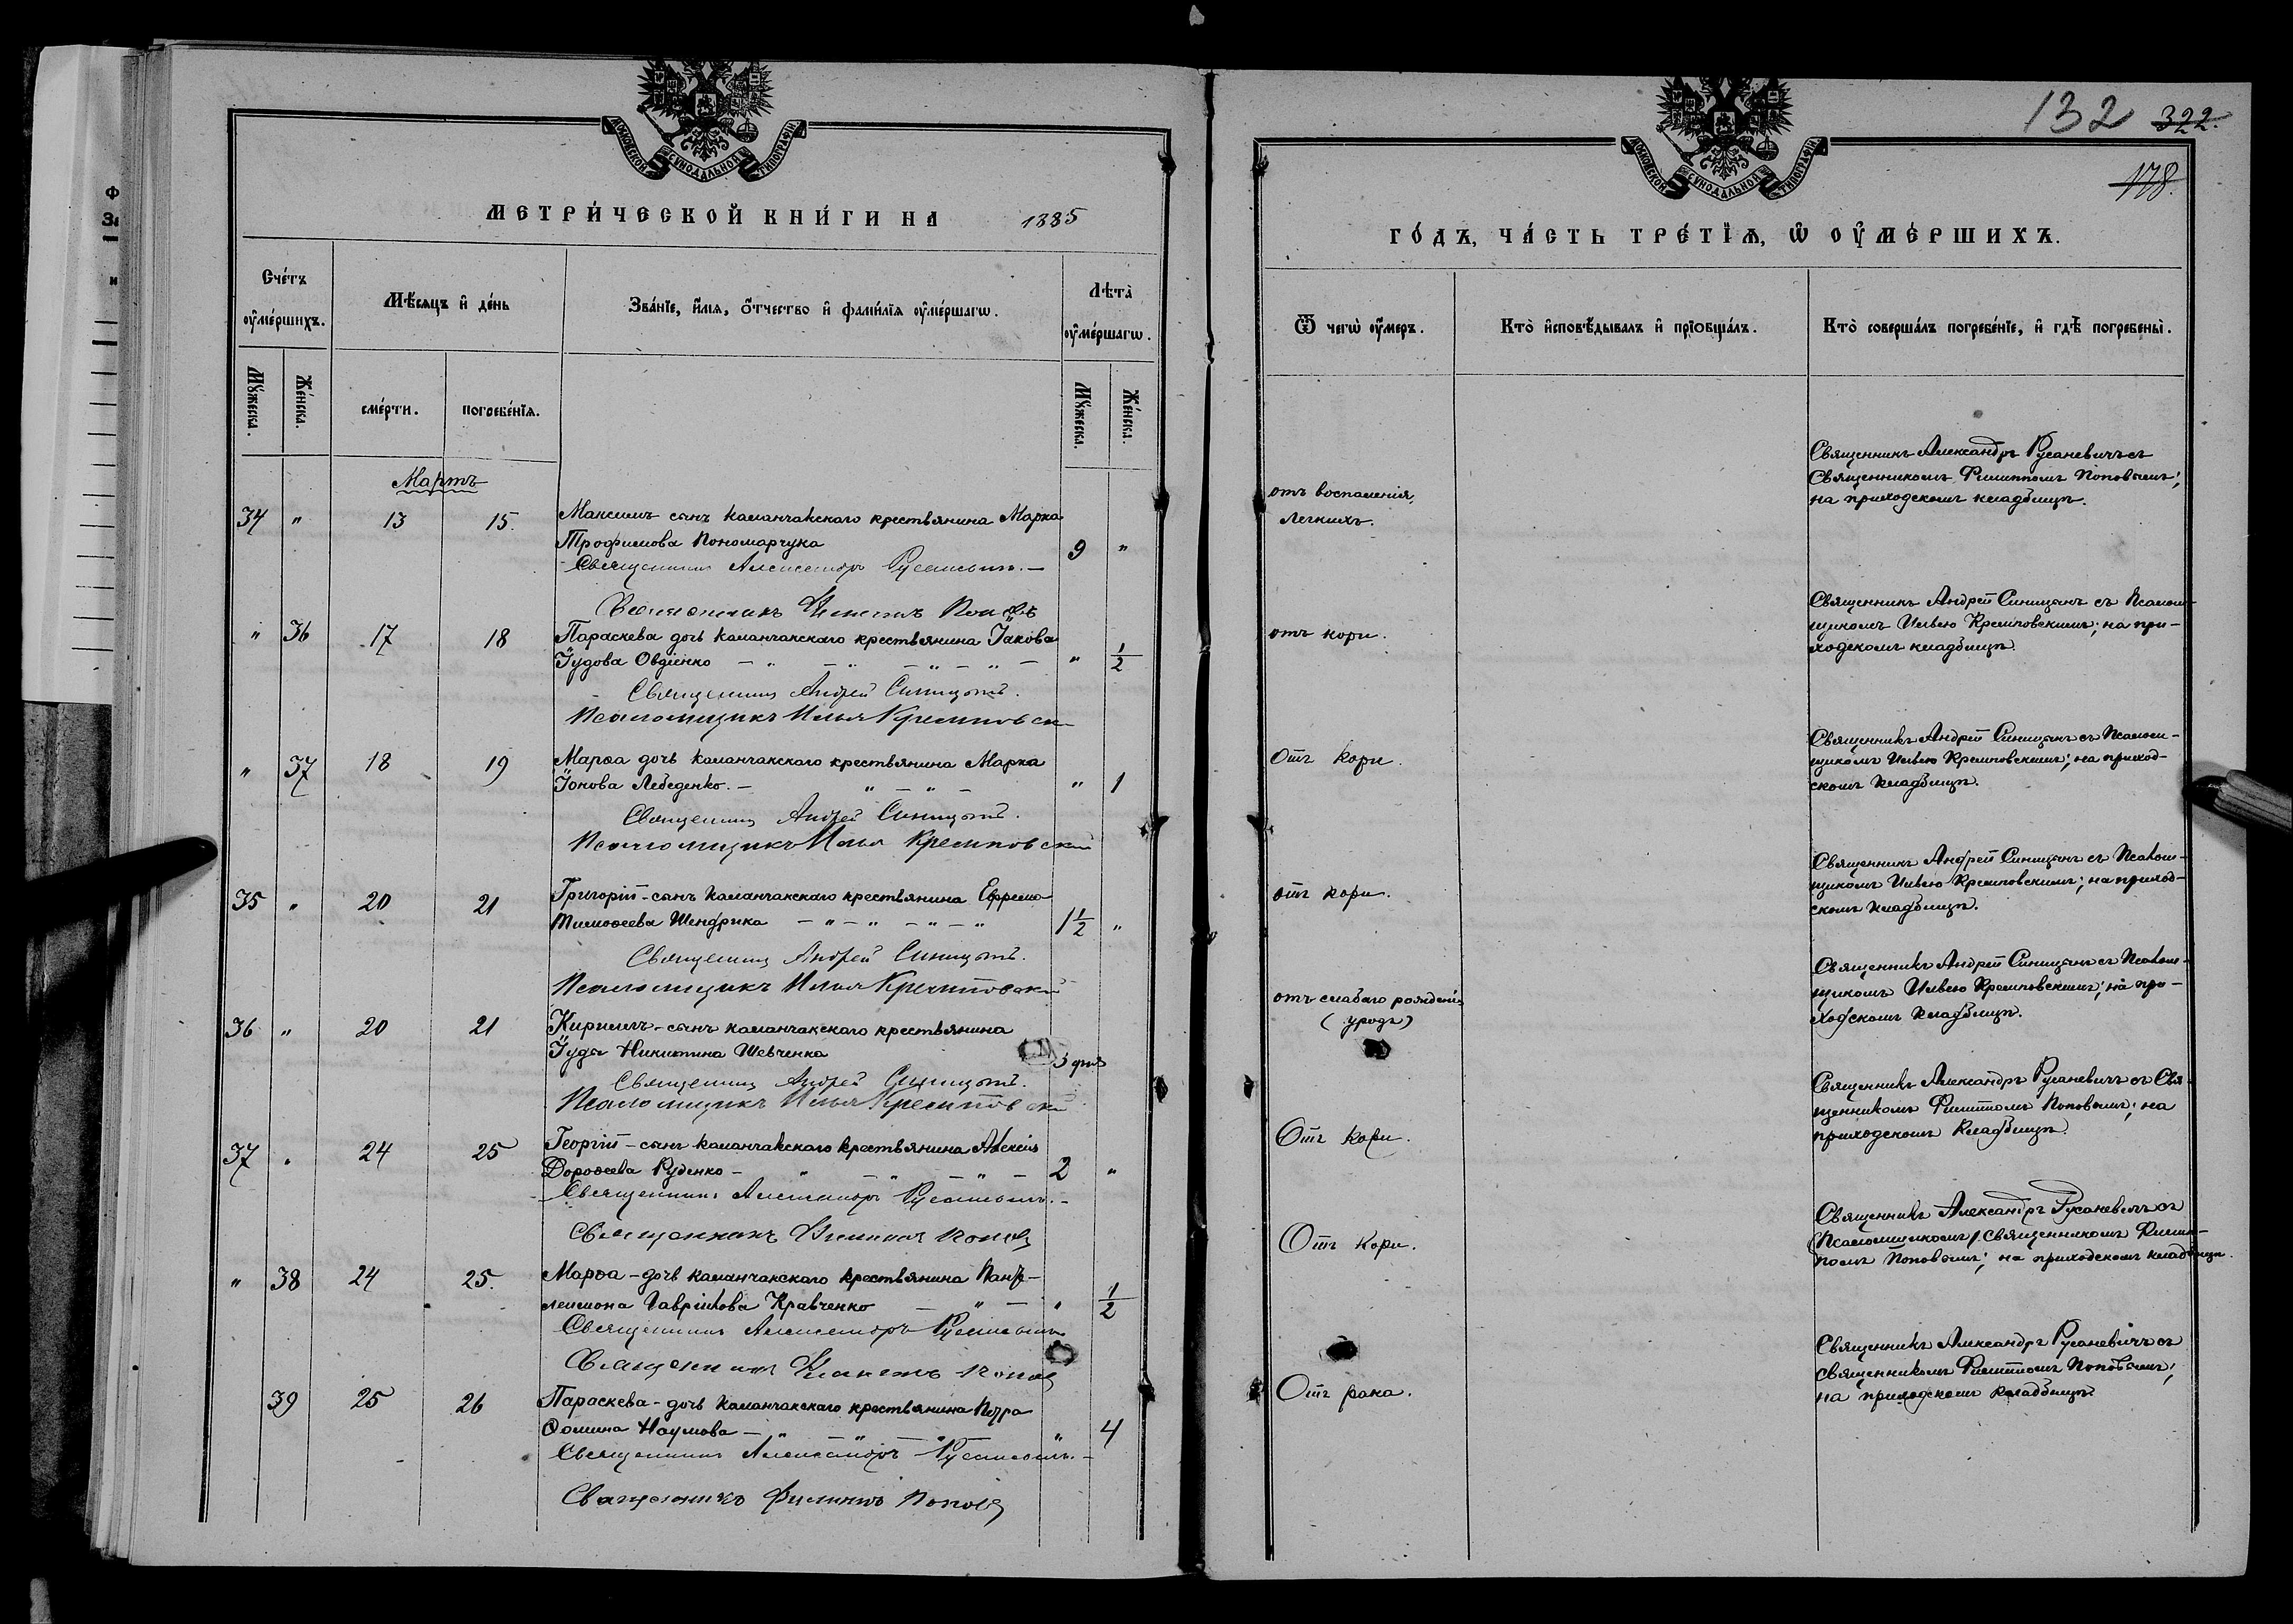 132 322.
178.
МОСКОВСКОЙ СѴНОДАЛЬНОЙ ТИПОГРАФІИ
МОСКОВСКОЙ СѴНОДАЛЬНОЙ ТИПОГРАФІИ
МЕТРИ́ЧЕСКОЙ КНИ́ГИ НА 1885
ГО́ДЪ, ЧА́СТЬ ТРЕ́ТІѦ, Ѽ ОУ҆МЕ́РШИХЪ.
Сче́тъ
оу҆ме́ршихъ.
Мѣ́сяцъ и҆ де́нь
Зва́нїе, и҆́мѧ, ѻ҆́тчество и҆ фами́лїѧ оу҆ме́ршагѡ.
Лѣта̀
оу҆ме́ршагѡ.
Ѿ чегѡ̀ оу҆́меръ.
Кто̀ и҆сповѣ́дывалъ и҆ прїѻбща́лъ.
Кто̀ соверша́лъ погребе́нїе, и҆ гдѣ̀ погребены̀.
Мꙋ́жеска.
Же́нска.
сме́рти.
погребе́нїѧ.
Мꙋ́жеска.
Же́нска.
Мартъ
34 " 13 15.
Максимъ сынъ каланчакскаго крестьянина Марка
Трофимова Пономарчука 9 "
Священникъ Александръ Русаневичъ. –
Священникъ Филиппъ Поповъ
отъ воспаленія
легкихъ.
Священникъ Александръ Русаневичъ съ
Священникомъ Филиппомъ Поповымъ;
на приходскомъ кладбищѣ.
" 36 17 18
Параскева дочь каланчакскаго крестьянина Іакова
Іудова Овдіенко – " – " – " – " – " 1/2
Священникъ Андрей Синицынъ.
Псаломщикъ Илья Кремповск
отъ кори.
Священникъ Андрей Синицынъ съ Псалом-
щикомъ Ильею Кремповскимъ; на при-
ходскомъ кладбищѣ.
" 37 18 19
Марѳа дочь каланчакскаго крестьянина Марка
Іонова Лебеденко. – " – " – " 1
Священникъ Андрей Синицынъ.
Псаломщикъ Илья Кремповский
Отъ кори.
Священникъ Андрей Синицынъ съ Псалом-
щикомъ Ильею Кремповскимъ; на приход-
скомъ кладбищѣ.
35 " 20 21
Григорій – сынъ каланчакскаго крестьянина Ефрема
Тимоѳеева Шендрика – " – " – " – " 1 1/2 "
Священникъ Андрей Синицынъ.
Псаломщикъ Илья Кремповский
отъ кори.
Священникъ Андрей Синицынъ съ Псалом-
щикомъ Ильею Кремповскимъ; на приход-
скомъ кладбищѣ.
36 " 20 21
Кириллъ – сынъ каланчакскаго крестьянина
Іуды Никитина Шевченка 3 дня
Священникъ Андрей Синицынъ.
Псаломщикъ Илья Кремповски
отъ слабаго рожденія
(уродъ)
Священникъ Андрей Синицынъ съ Псалом-
щикомъ Ильею Кремповскимъ; на при-
ходскомъ кладбищѣ.
37 " 24 25
Георгій – сынъ каланчакскаго крестьянина Алексія
Дороѳеева Руденко – " – " – " – 2 "
Священникъ Александръ Русаневичъ. –
Священникъ Филиппъ Поповъ
Отъ кори.
Священникъ Александръ Русаневичъ съ Свя-
щенникомъ Филиппомъ Поповымъ; на
приходскомъ кладбищѣ.
" 38 24 25.
Марѳа – дочь каланчакскаго крестьянина Панте-
леимона Гаврилова Кравченко – " – " 1/2
Священникъ Александръ Русаневичъ
Священникъ Филиппъ Поповъ
Отъ кори.
Священникъ Александръ Русаневичъ съ
(Псаломщикомъ) Священникомъ Филип-
помъ Поповымъ; на приходскомъ кладбищѣ.
39 25 26
Параскева – дочь каланчакскаго крестьянина Петра
Ѳомина Наумова – " – " – " – " 4
Священникъ Александръ Русаневичъ. –
Священникъ Филиппъ Поповъ
Отъ рака.
Священникъ Александръ Русаневичъ съ
священникомъ Филиппомъ Поповымъ;
на приходскомъ кладбищѣ.